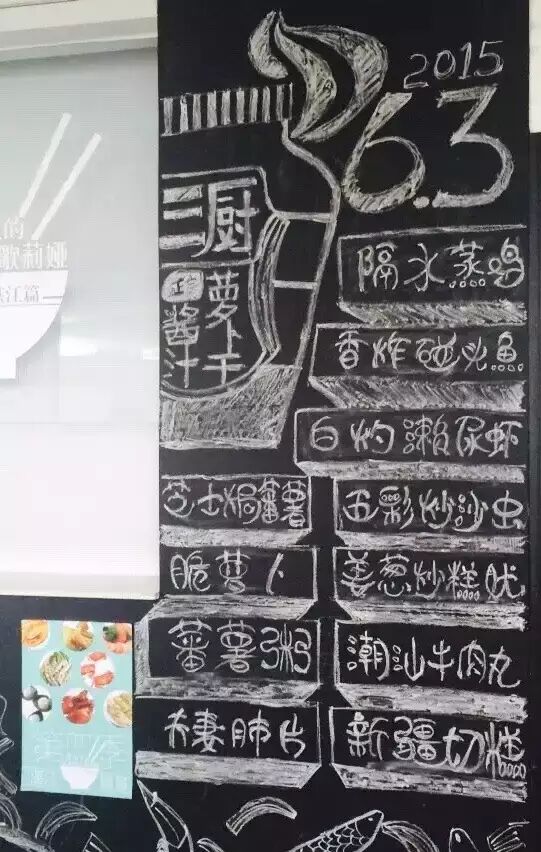 2015
6.3
三厨
萝卜干
酱汁
隔水蒸鸡
香炸碰尖魚
白灼濑尿虾
芝士焗蕃薯
五彩炒沙虫
脆萝卜
姜葱炒糕
蕃薯粥
潮汕牛肉丸
夫妻肺片
新疆切糕
的
歌莉娅
江篇